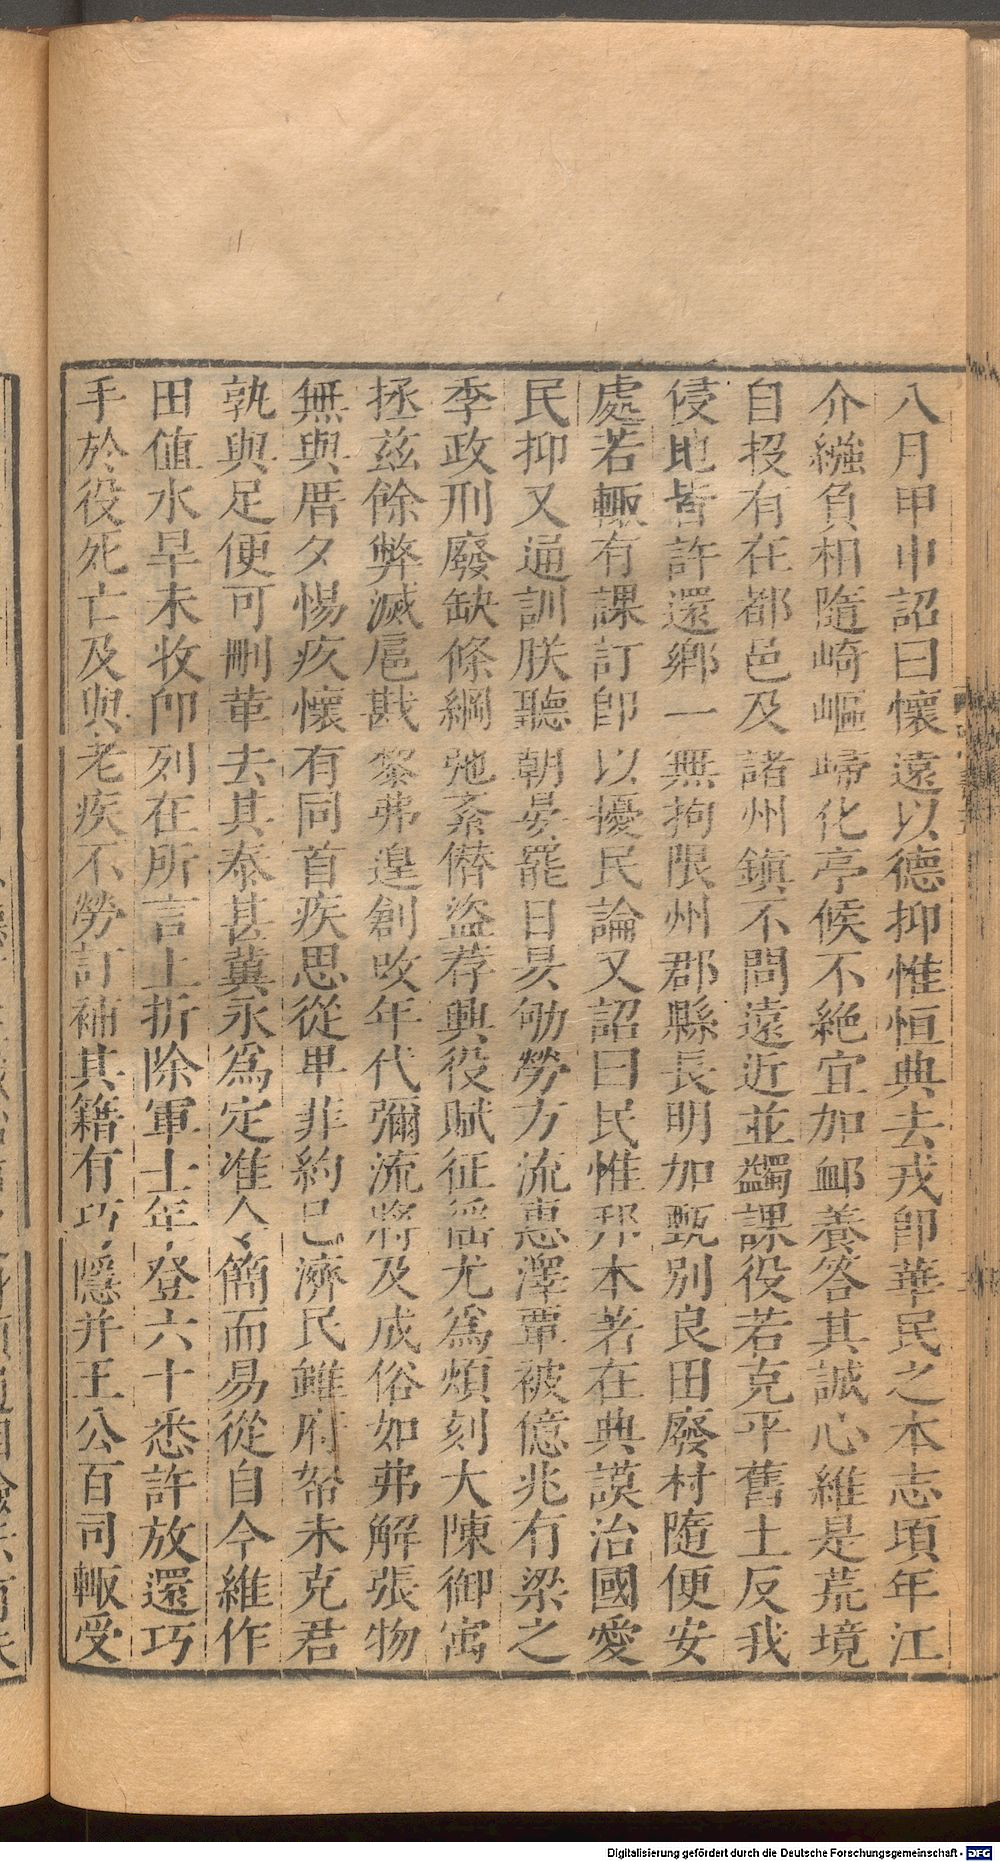 八月甲申詔曰懷遠以德抑惟恒典去戎卽華民之本志頃年江
介繈負相隨崎嶇歸化亭候不絶宜加䘏養答其誠心維是荒境
自投有在都邑及諸州鎮不問遠近並蠲課役若克平舊土反我
侵地皆許還鄉一無拘限州郡縣長明加甄別良田廢村隨便安
處若輙有課訂卽以擾民論又詔曰民惟邦本著在典謨治國愛
民抑又通訓朕聽朝晏罷日昃劬勞方流惠澤覃被億兆有梁之
季政刑廢缺條綱弛紊僭盜荐興役賦征徭尤爲煩刻大陳御寓
拯兹餘弊滅扈戡黎弗遑創改年代彌流將及成俗如弗解張物
無與厝夕惕疚懷有同首疾思從卑菲約己濟民雖府帑未克君
孰與足便可刪革去其泰甚冀永爲定准令簡而易從自今維作
田値水旱未收卽列在所言上折除軍士年登六十悉許放還巧
手於役死亡及與老疾不勞訂補其籍有巧隱并王公百司輙受
Digitalisierung gefördert durch die Deutsche Forschungsgemeinschaft - DFG